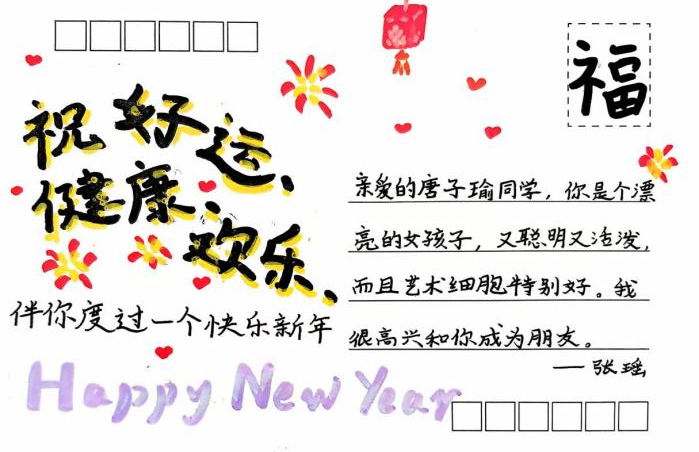 祝好运、
健康、
欢乐、
伴你度过一个快乐新年
Happy New Year
福
亲爱的唐子瑜同学，你是个漂
亮的女孩子，又聪明又活泼，
而且艺术细胞特别好。我
很高兴和你成为朋友。
——张瑶